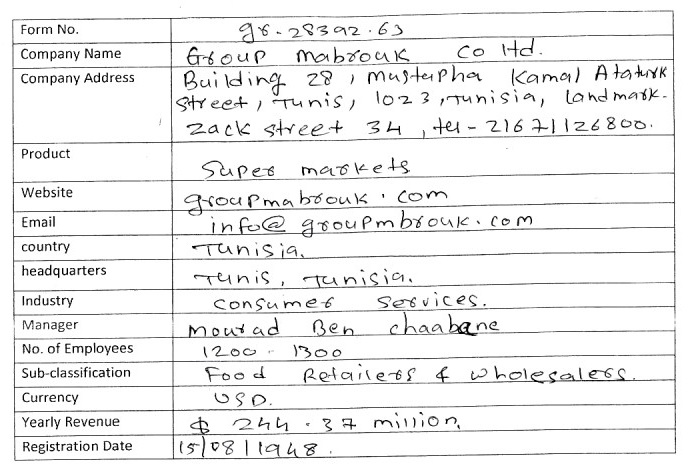 Form No. gr-28392.63
Company Name Group mabrouk co ltd.
Company Address Building 28, mustapha Kamal Ataturk
street, Tunis, 1023, Tunisia, landmark-
zack street 34, tel-21671126800.
Product Super markets
Website groupmabrouk.com
Email info@groupmbrouk.com
country Tunisia.
headquarters Tunis, Tunisia.
Industry consumer services.
Manager mourad Ben chaabane
No. of Employees 1200-1300
Sub-classification Food Retailers & wholesalers.
Currency USD.
Yearly Revenue $ 244.37 million.
Registration Date 15/08/1948.